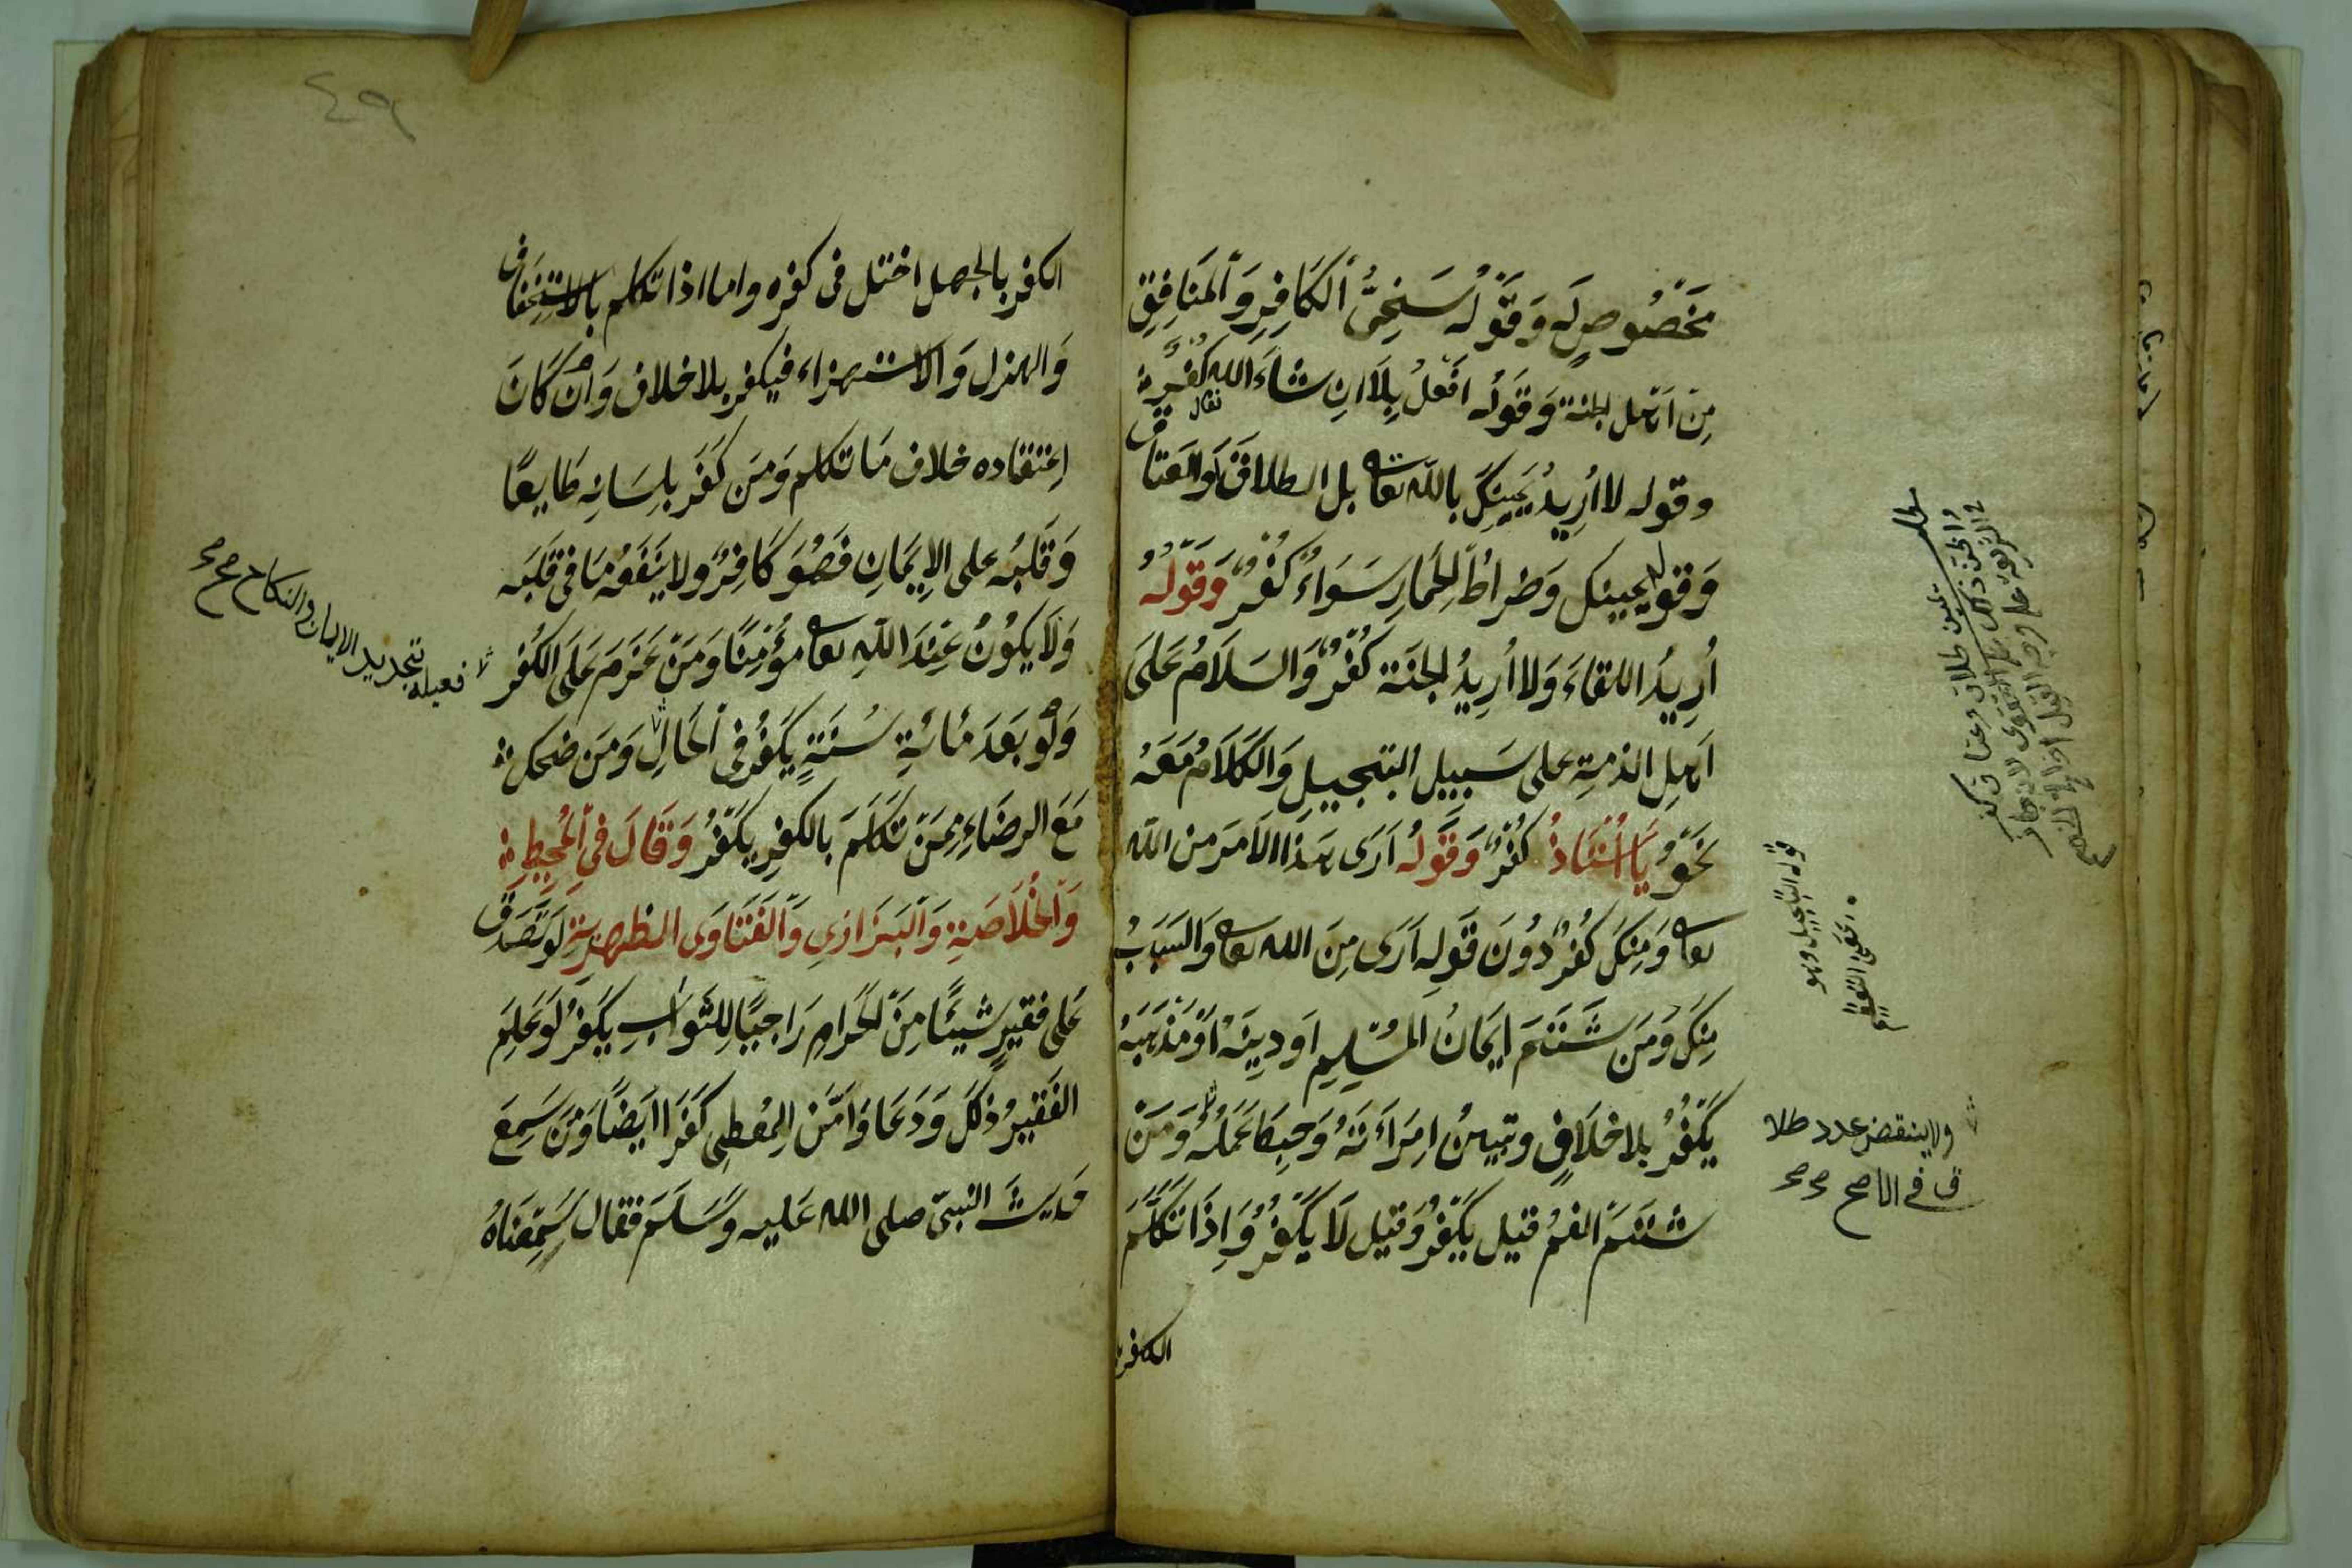 مَخْصُوصٍ لَه وَقَوْلُه سَخِىُّ الْكَافِرِ وَالْمُنَافِقِ
مِنْ اَهْلِ الجنة وَقَوْلُه افْعَلُ بِلَا اِنْ شَاءَ الله تعالى كُفْرٌ
وقوله لا اُرِيدُ يَمِينَكَ بالله تعا بل الطلاقَ وَالْعَتاق
وَقوله ليمينك وَضراطُ الْحِمَارِ سَوَاءٌ كُفْرٌ وَقَوْلُهُ
اُرِيدُ اللقاءَ وَلا اُرِيدُ الجَنَّة كُفْرٌ وَالسَلَامُ عَلَى
اَهلِ الذمةِ على سَبِيلِ التبجيلِ وَالكَلَامُ مَعَهُ
نَحْوُ يَا اُسْتَاذُ كُفْرٌ وَقَوْلُهُ اَرَى هَذَا الاَمْرَ من الله
تعا وَمِنْكَ كُفْرٌ دُونَ قَوْلِه اَرَى مِنَ الله تعا وَالسَبَبُ
مِنْكَ وَمَنْ شَتَمَ اِيمَانُ الْمُسْلِمِ اَو دِينَهُ اَوْ مَذْهَبَهُ
يَكْفُرُ بلا خلَافٍ وتبينُ اِمْرَاَتَهُ وَحبِطَ عَمَلُهُ وَمَنْ
شَتَمَ الفمُ قيل يَكْفُرُ وَقيل لَا يَكْفُرُ وَاِذَا تَكَلَّمَ
الكفر
وَالحق ذلك
قوله التبجيل وهو
بمعنى التعظيم
ولا ينقض عدد طلا
ق في الاصح صح صح
٤٩
الكفر بالجهل اختل فى كفره واما اذا تكلم بالاستِخْفاف
وَالهزل وَالاستهزاء فيكفر بلا خلاف وَاِنْ كَانَ
اِعتقاده خلاف مَا تكلم وَمَن كَفَرَ بِلِسَانِه طَايعًا
وَقَلْبُه على الاِيمَانِ فَهُوَ كَافِرٌ ولا يَنْفَعُه مَا فى قَلْبِه
وَلَا يَكُونُ عِنْدَ اللهِ تعا مُؤْمِنًا وَمَنْ عَزَمَ عَلَى الكُفْر
وَلَوْ بَعْدَ مِائَةِ سَنَةٍ يَكْفُرُ فى الْحَالِ وَمَن ضحك
مَعَ الرضَاءِ مِمَنْ تَكَلَّمَ بالكفرِ يَكْفُرُ وَقَالَ فى الْمُحِيطِ
وَالْخُلَاصَةِ وَالْبَزَازي وَالْفَتَاوَى الظهيرية لَوْ تَصَدَّق
عَلى فقيرٍ شَيئًا مِنَ الْحَرَامِ رَاجيًا لِلثَّوابِ يَكْفُرُ لَوْ عَلِمَ
الفَقيرُ ذَلكَ وَدَعَا وَاَمَّنَ المُعْطِى كَفَرَا اَيضًا وَمَنْ سَمِعَ
حَديث النبىّ صلى الله عَليه وَسَلَّمَ فقال سَمِعْنَاهُ
فعليه تجديد الايمان والنكاح صح صح